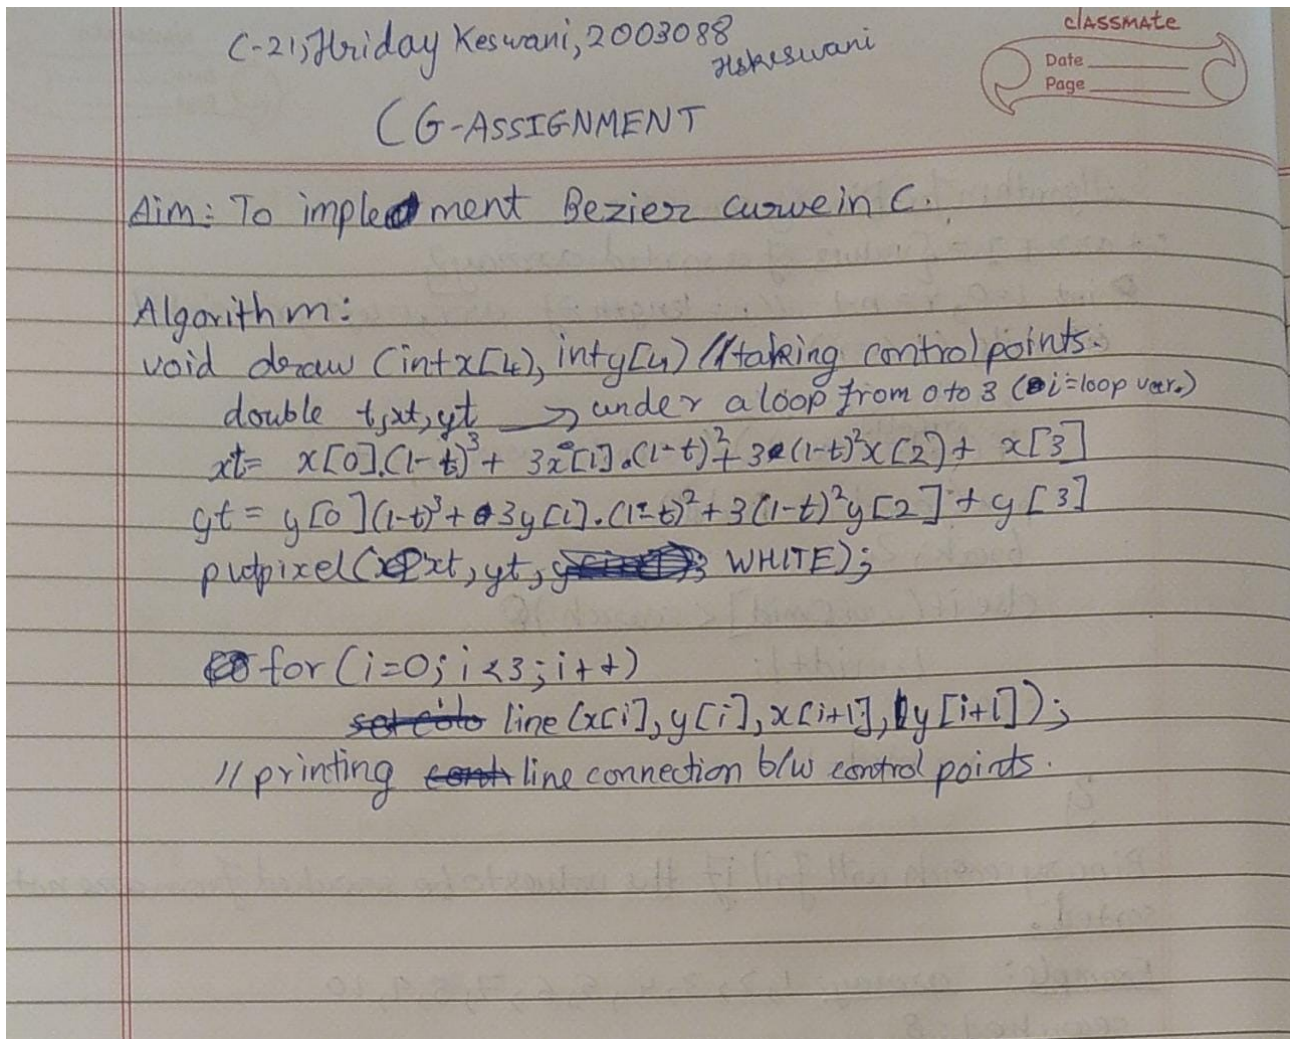 C-21, Hriday Keswani, 2003088
Hskeswani
classmate
Date
Page
CG-ASSIGNMENT
Aim: To implement Bezier curve in C.
Algorithm:
void draw (int x[4), int y[4) // taking control points.
double t, xt, yt → under a loop from 0 to 3 (i=loop var.)
xt= x[0].(1-t)³+ 3x[1].(1-t)²+ 3(1-t)²x[2]+ x[3]
yt = y[0](1-t)³+ 3y[1].(1-t)²+3(1-t)²y[2]+y[3]
putpixel(xt, yt, WHITE);
for (i=0; i<3; i++)
line (x[i], y[i], x[i+1], y[i+1]);
// printing line connection b/w control points.